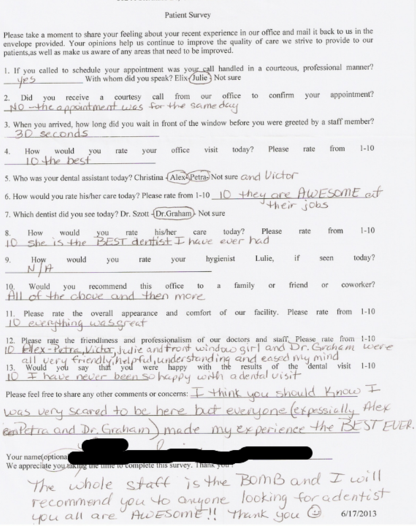 Patient Survey
Please take a moment to share your feeling about your recent experience in our office and mail it back to us in the
envelope provided. Your opinions help us continue to improve the quality of care we strive to provide to our
patients,as well as make us aware of any areas that need to be improved.
1. If you called to schedule your appointment was your call handled in a courteous, professional manner?
yes With whom did you speak? Elix Julie Not sure
2. Did you receive a courtesy call from our office to confirm your appointment?
NO - the appointment was for the same day
3. When you arrived, how long did you wait in front of the window before you were greeted by a staff member?
30 seconds
4. How would you rate your office visit today? Please rate from 1-10
10 the best
5. Who was your dental assistant today? Christina Alex Petra Not sure and Victor
6. How would you rate his/her care today? Please rate from 1-10 10 they are AWESOME at
their jobs
7. Which dentist did you see today? Dr. Szott Dr.Graham Not sure
8. How would you rate his/her care today? Please rate from 1-10
10 she is the BEST dentist I have ever had
9. How would you rate your hygienist Lulie, if seen today?
N/A
10. Would you recommend this office to a family or friend or coworker?
All of the above and then more
11. Please rate the overall appearance and comfort of our facility. Please rate from 1-10
10 everything was great
12. Please rate the friendliness and professionalism of our doctors and staff. Please rate from 1-10
10 Alex-Petra, Victor, Julie and front window girl and Dr. Graham were
all very friendly, helpful, understanding and eased my mind
13. Would you say that you were happy with the results of the dental visit 1-10
10 I have never been so happy with a dental visit
Please feel free to share any other comments or concerns: I think you should know I
was very scared to be here but everyone (expessially Alex
Petra and Dr. Graham) made my experience the BEST EVER.
Your name(optional
We appreciate you taking the time to complete this survey. Thank you
The whole staff is the BOMB and I will
recommend you to anyone looking for a dentist
you all are AWESOME!! Thank you ☺ 6/17/2013